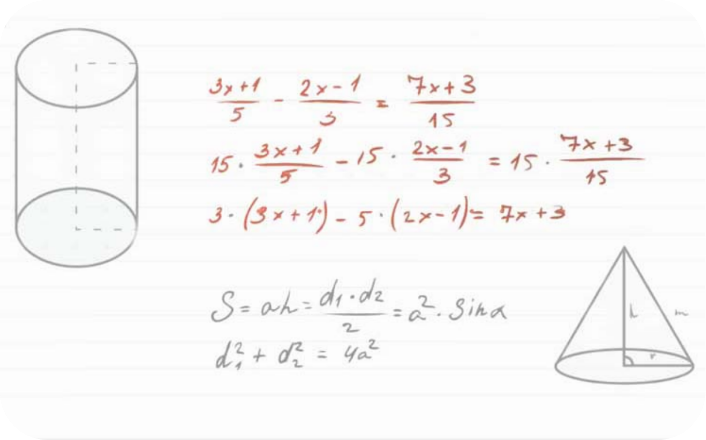 3x+1/5 - 2x-1/3 = 7x+3/15
15 · 3x+1/5 - 15 · 2x-1/3 = 15 · 7x+3/15
3·(3x+1)-5·(2x-1)= 7x+3
S=ah=d₁·d₂/2=a²·Sinα
d₁²+d₂²=4a²
h m
r